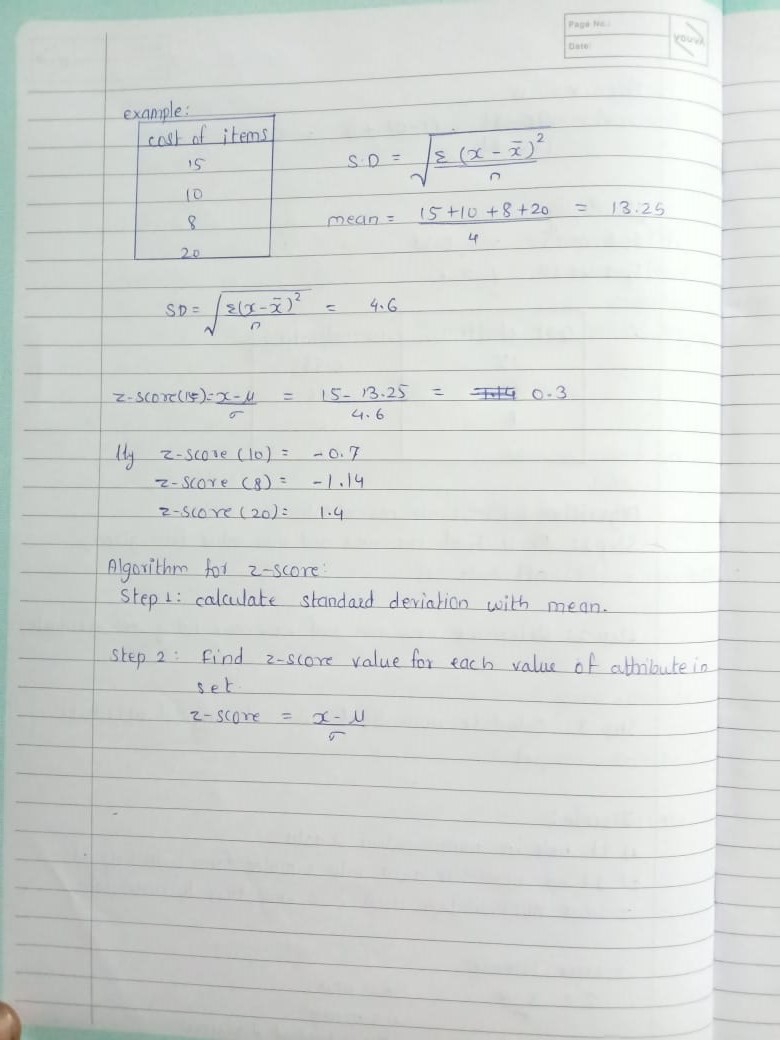 Page No.:
Date:
YOUVA
example:
cost of items
15
10
8
20
S.D = √Σ(x - x̄)²/n
mean = 15+10+8+20/4 = 13.25
SD = √Σ(x-x̄)²/n = 4.6
z-score(15) = x-μ/σ = 15-13.25/4.6 = 0.3
llly z-score (10) = -0.7
z-score (8) = -1.14
z-score (20) = 1.4
Algorithm for z-score:
Step 1: calculate standard deviation with mean.
Step 2: Find z-score value for each value of attribute in
set.
z-score = x-μ/σ